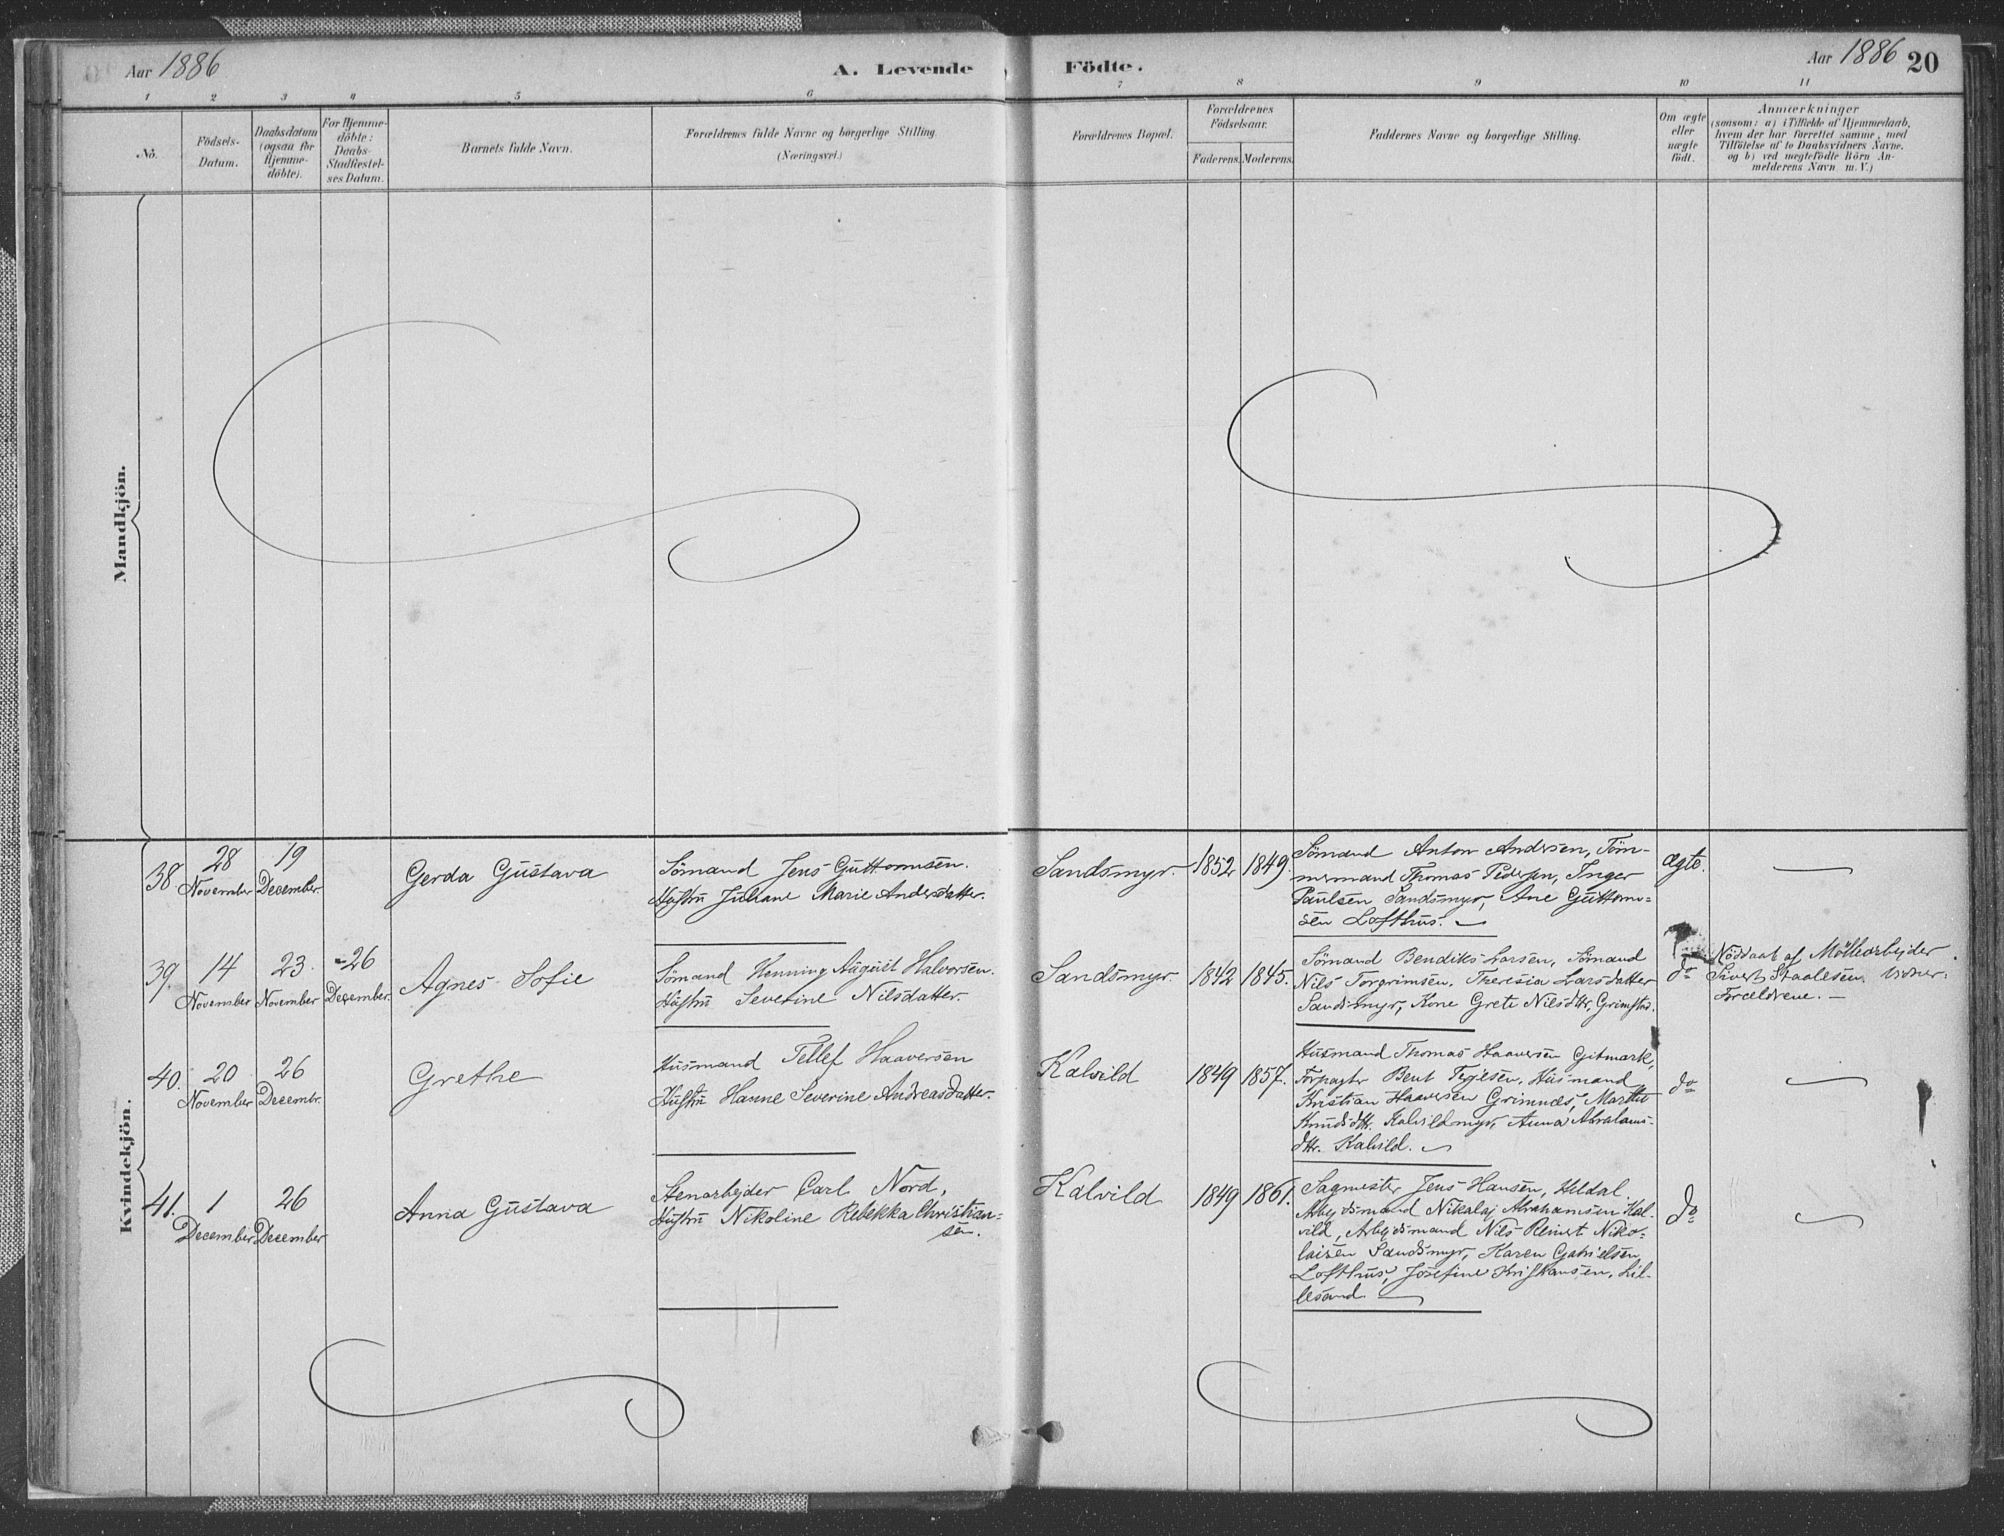 Aar 1886
A. Levende Födte.
Aar 1886 20
1 2 3 4 5 6 7 8 9 10 11
No.
Födsels-
Datum.
Daabsdatum
(ogsaa for
Hjemme-
döbte).
For Hjemme-
döbte:
Daabs-
Stadfæstel-
ses Datum.
Barnets fulde Navn.
Forældrenes fulde Navne og borgerlige Stilling.
(Næringsvei.)
Forældrenes Bopæl.
Forældrenes
Födselsaar.
Faderens. Moderens.
Faddernes Navne og borgerlige Stilling.
Om ægte
eller
uægte
födt.
Anmærkninger
(saasom: a) i Tilfælde af Hjemmedaab,
hvem der har forrettet samme, med
Tilföielse af to Daabsvidners Navne,
og b) ved uægtefödte Börn An-
melderens Navn m. V.)
Mandkjön.
Kvindekjön.
38.
28
November
19
December
Gerda Gustava
Sömand Jens Guttormsen.
Hustru Juliane Marie Andersdatter.
Sandsmyr.
1852
1849.
Sömand Anton Andersen, Töm-
mermand Thomas Pedersen, Inger
Paulsen Sandsmyr, Ane Guttorm-
sen Lofthus.
ægte.
39.
14
November
23.
November
26
December
Agnes Sofie
Sömand Henning August Halvorsen.
Hustru Severine Nilsdatter.
Sandsmyr.
1842
1845.
Sömand Bendiks Larsen, Sömand
Nils Torgrimsen, Theresia Larsdatter
Sandsmyr, Kone Grete Nilsdtr, Grimstad.
do
Nöddaab af Möllearbejder
Sivert Staalesen. Vidner:
Forældrene.
40.
20
November
26
Decembr.
Grethe
Husmand Tellef Haaversen
Hustru Hanne Severine Andreasdatter.
Kalvild
1849
1857.
Husmand Thomas Haaversen Gitmark,
Forpagter Bent Terjesen, Husmand
Kristian Haaversen Grimnes, Marthe
Knudsdtr. Kalvildmyr, Anna Abrahams-
dtr. Kalvild.
do
41.
1
December
26
December
Anna Gustava
Stenarbejder Carl Nord,
Hustru Nikoline Rebekka Christian-
sen.
Kalvild
1849
1861.
Sagmester Jens Hansen, Heldal
Arbejdsmand Nikolaj Abrahamsen Kal-
vild, Arbejdsmand Nils Reinert Niko-
laisen Sandsmyr, Karen Gabrielsen
Lofthus, Josefine Kristiansen, Lil-
lesand.
do